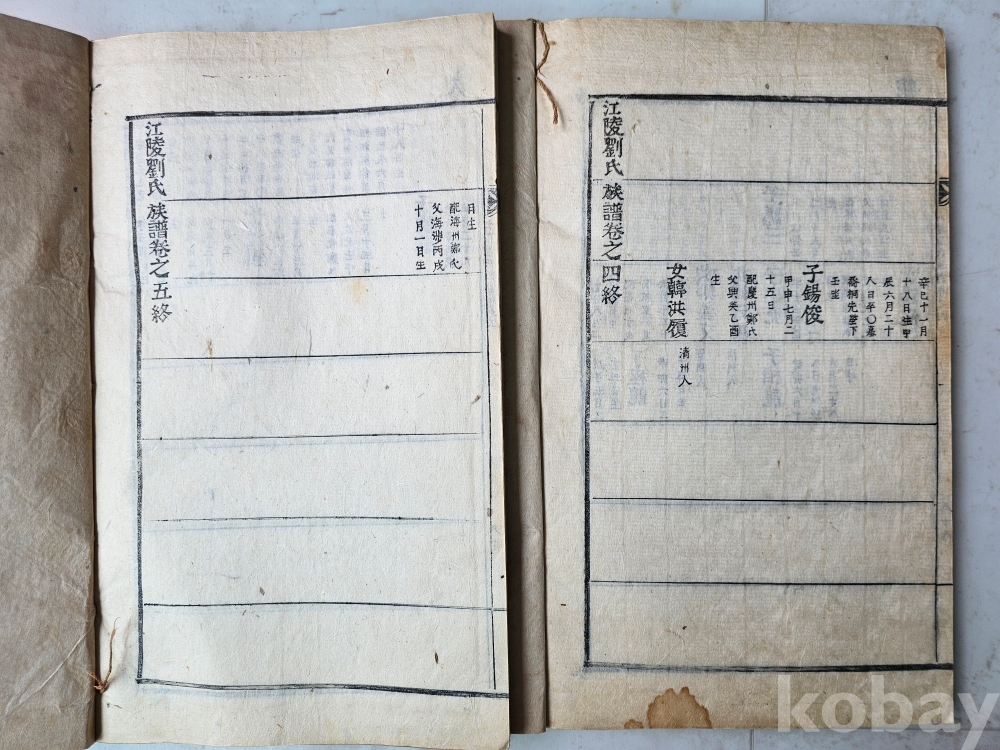 辛巳十一月
十八日生甲
辰六月二十
八日卒〇墓
喬桐先塋下
壬坐
子錫俊
甲申七月二
十五日
配慶州鄭氏
父興采乙酉
生
女韓洪履
淸州人
江陵劉氏族譜卷之四終
日生
配海州鄭氏
父海涉丙戌
十月一日生
江陵劉氏族譜卷之五終
kobay